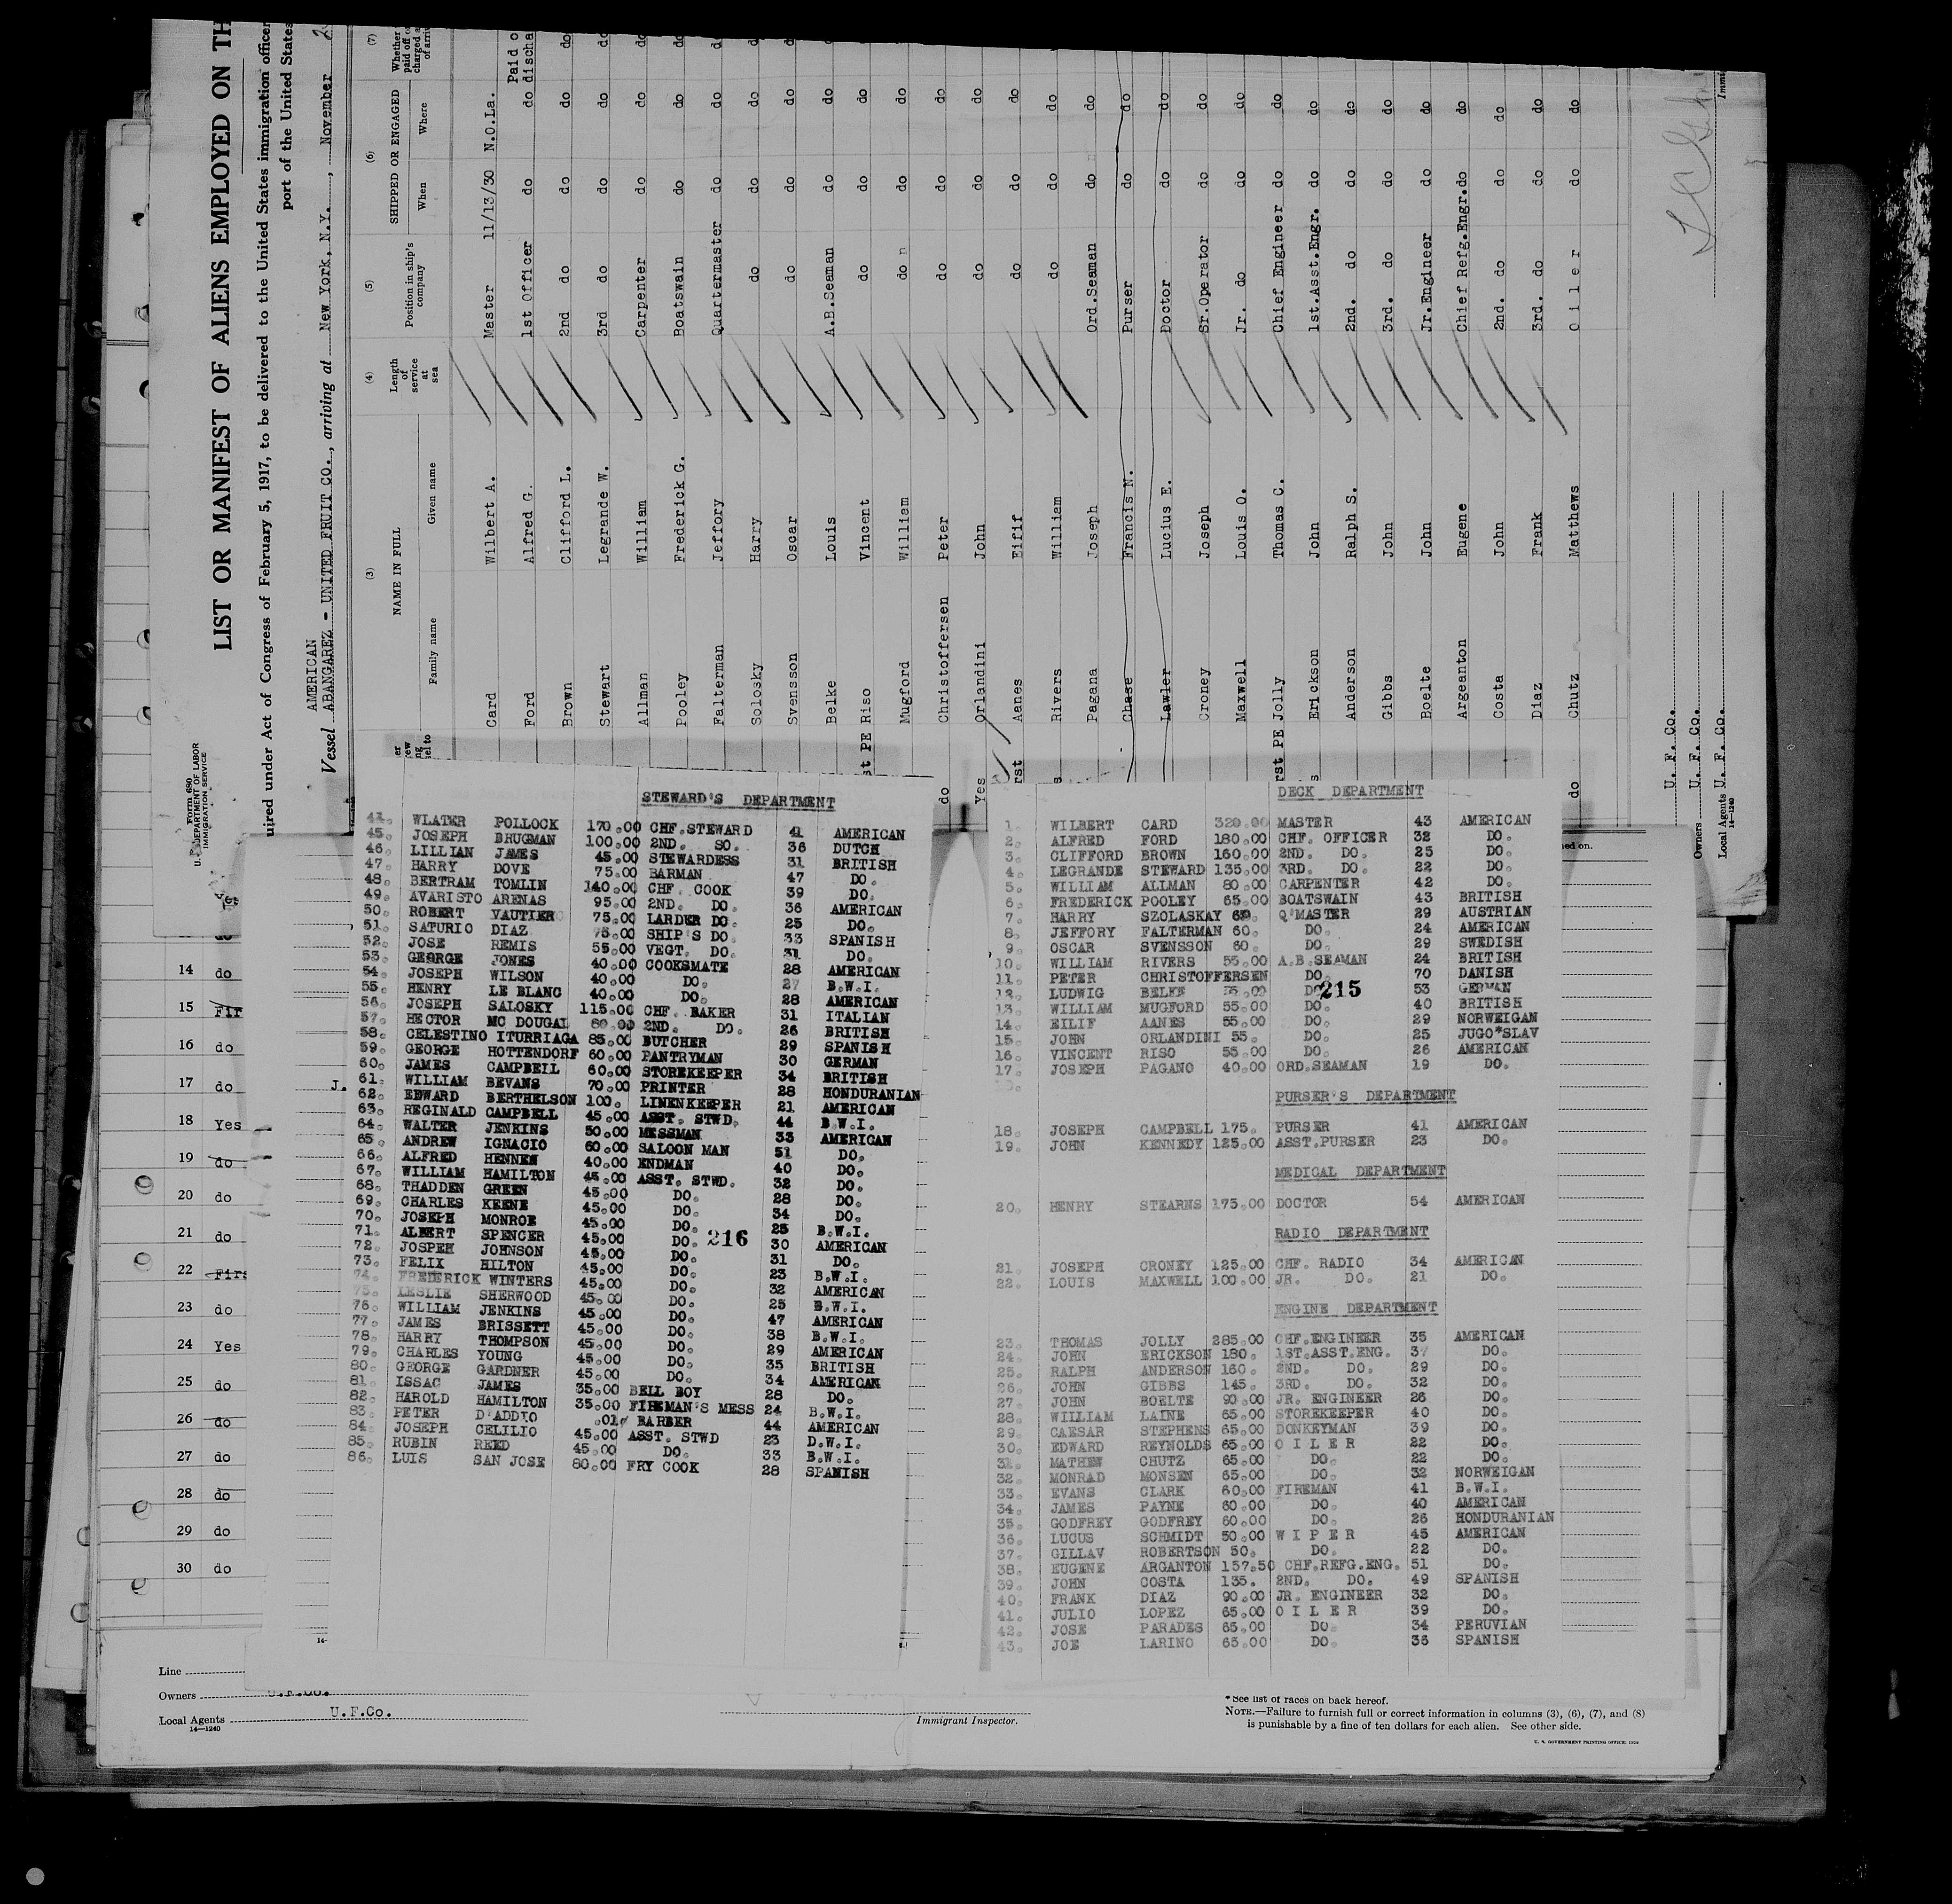 Form 680
U. S. DEPARTMENT OF LABOR
IMMIGRATION SERVICE
LIST OR MANIFEST OF ALIENS EMPLOYED ON TH
uired under Act of Congress of February 5, 1917, to be delivered to the United States immigration officer
port of the United States
AMERICAN
Vessel ABANGAREZ - UNITED FRUIT CO., arriving at New York, N.Y., November 2
(3) (4) (5) (6) (7)
NAME IN FULL
Family name Given name
Length of service at sea
Position in ship's company
SHIPPED OR ENGAGED
When Where
Card Wilbert A. Master 11/13/30 N.O.La.
Ford Alfred G. 1st Officer do do
Brown Clifford L. 2nd do do do do
Stewart Legrande W. 3rd do do do do
Allman William Carpenter do do do
Pooley Frederick G. Boatswain do do do
Falterman Jeffory Quartermaster do do
Solosky Harry do do do do
Svensson Oscar do do do
Belke Louis A.B.Seaman do do
Riso Vincent do do do
Mugford William do do do
Christoffersen Peter do do do
Orlandini John do do do
Aanes Eifif do do do
Rivers William do do do
Pagana Joseph Ord.Seaman do do
Chase Francis N. Purser do do
Lawler Lucius E. Doctor do do
Croney Joseph Sr.Operator do do
Maxwell Louis O. Jr. do do do
Jolly Thomas C. Chief Engineer do do
Erickson John 1st.Asst.Engr. do do
Anderson Ralph S. 2nd. do do do
Gibbs John 3rd. do do do
Boelte John Jr.Engineer do do
Argeanton Eugene Chief Refg.Engr. do do
Costa John 2nd. do do do
Diaz Frank 3rd. do do do
Chutz Matthews Oiler do do
Owners U. F. Co.
Local Agents U. F. Co.
14—1240
STEWARD'S DEPARTMENT
44. WLATER POLLOCK 170.00 CHF.STEWARD 41 AMERICAN
45. JOSEPH BRUGMAN 100.00 2ND. SO. 36 DUTCH
46. LILLIAN JAMES 45.00 STEWARDESS 31 BRITISH
47. HARRY DOVE 75.00 BARMAN 47 DO.
48. BERTRAM TOMLIN 140.00 CHF. COOK 39 DO.
49. AVARISTO ARENAS 95.00 2ND. DO. 36 AMERICAN
50. ROBERT VAUTIER 75.00 LARDER DO. 25 DO.
51. SATURIO DIAZ 75.00 SHIP'S DO. 33 SPANISH
52. JOSE REMIS 55.00 VEGT. DO. 31 DO.
53. GEORGE JONES 40.00 COOKSMATE 28 AMERICAN
54. JOSEPH WILSON 40.00 DO. 27 B.W.I.
55. HENRY LE BLANC 40.00 DO. 28 AMERICAN
56. JOSEPH SALOSKY 115.00 CHF. BAKER 31 ITALIAN
57. HECTOR MC DOUGAL 80.00 2ND. DO. 26 BRITISH
58. CELESTINO ITURRIAGA 85.00 BUTCHER 29 SPANISH
59. GEORGE HOTTENDORF 60.00 PANTRYMAN 30 GERMAN
60. JAMES CAMPBELL 60.00 STOREKEEPER 34 BRITISH
61. WILLIAM BEVANS 70.00 PRINTER 28 HONDURANIAN
62. EDWARD BERTHELSON 100. LINENKEEPER 21 AMERICAN
63. REGINALD CAMPBELL 45.00 ASST. STWD. 44 B.W.I.
64. WALTER JENKINS 50.00 MESSMAN 33 AMERICAN
65. ANDREW IGNACIO 60.00 SALOON MAN 51 DO.
66. ALFRED HENNEN 40.00 ENDMAN 40 DO.
67. WILLIAM HAMILTON 45.00 ASST. STWD. 32 DO.
68. THADDEN GREEN 45.00 DO. 28 DO.
69. CHARLES KEENE 45.00 DO. 34 DO.
70. JOSEPH MONROE 45.00 DO. 25 B.W.I.
71. ALBERT SPENCER 45.00 DO. 216 30 AMERICAN
72. JOSPEH JOHNSON 45.00 DO. 31 DO.
73. FELIX HILTON 45.00 DO. 23 B.W.I.
74. FREDERICK WINTERS 45.00 DO. 32 AMERICAN
75. LESLIE SHERWOOD 45.00 DO. 25 B.W.I.
76. WILLIAM JENKINS 45.00 DO. 47 AMERICAN
77. JAMES BRISSETT 45.00 DO. 38 B.W.I.
78. HARRY THOMPSON 45.00 DO. 29 AMERICAN
79. CHARLES YOUNG 45.00 DO. 35 BRITISH
80. GEORGE GARDNER 45.00 DO. 34 AMERICAN
81. ISSAC JAMES 35.00 BELL BOY 28 DO.
82. HAROLD HAMILTON 35.00 FIREMAN'S MESS 24 B.W.I.
83. PETER D'ADDIO .01¢ BARBER 44 AMERICAN
84. JOSEPH CELILIO 45.00 ASST. STWD 23 D.W.I.
85. RUBIN REED 45.00 DO. 33 B.W.I.
86. LUIS SAN JOSE 80.00 FRY COOK 28 SPANISH
DECK DEPARTMENT
1. WILBERT CARD 320.00 MASTER 43 AMERICAN
2. ALFRED FORD 180.00 CHF. OFFICER 32 DO.
3. CLIFFORD BROWN 160.00 2ND. DO. 25 DO.
4. LEGRANDE STEWARD 135.00 3RD. DO. 22 DO.
5. WILLIAM ALLMAN 80.00 CARPENTER 42 DO.
6. FREDERICK POOLEY 65.00 BOATSWAIN 43 BRITISH
7. HARRY SZOLASKAY 60. Q'MASTER 29 AUSTRIAN
8. JEFFORY FALTERMAN 60. DO. 24 AMERICAN
9. OSCAR SVENSSON 60. DO. 29 SWEDISH
10. WILLIAM RIVERS 55.00 A.B.SEAMAN 24 BRITISH
11. PETER CHRISTOFFERSEN DO. 70 DANISH
12. LUDWIG BELKE 55.00 DO. 215 53 GERMAN
13. WILLIAM MUGFORD 55.00 DO. 40 BRITISH
14. EILIF AANES 55.00 DO. 29 NORWEIGAN
15. JOHN ORLANDINI 55. DO. 25 JUGO*SLAV
16. VINCENT RISO 55.00 DO. 26 AMERICAN
17. JOSEPH PAGANO 40.00 ORD.SEAMAN 19 DO.
PURSER'S DEPARTMENT
18. JOSEPH CAMPBELL 175. PURSER 41 AMERICAN
19. JOHN KENNEDY 125.00 ASST.PURSER 23 DO.
MEDICAL DEPARTMENT
20. HENRY STEARNS 175.00 DOCTOR 54 AMERICAN
RADIO DEPARTMENT
21. JOSEPH CRONEY 125.00 CHF. RADIO 34 AMERICAN
22. LOUIS MAXWELL 100.00 JR. DO. 21 DO.
ENGINE DEPARTMENT
23. THOMAS JOLLY 285.00 CHF.ENGINEER 35 AMERICAN
24. JOHN ERICKSON 180. 1ST.ASST.ENG. 37 DO.
25. RALPH ANDERSON 160. 2ND. DO. 29 DO.
26. JOHN GIBBS 145. 3RD. DO. 32 DO.
27. JOHN BOELTE 90.00 JR. ENGINEER 26 DO.
28. WILLIAM LAINE 65.00 STOREKEEPER 40 DO.
29. CAESAR STEPHENS 65.00 DONKEYMAN 39 DO.
30. EDWARD REYNOLDS 65.00 O I L E R 22 DO.
31. MATHEW CHUTZ 65.00 DO. 22 DO.
32. MONRAD MONSEN 65.00 DO. 32 NORWEIGAN
33. EVANS CLARK 60.00 FIREMAN 41 B.W.I.
34. JAMES PAYNE 60.00 DO. 40 AMERICAN
35. GODFREY GODFREY 60.00 DO. 26 HONDURANIAN
36. LUCUS SCHMIDT 50.00 W I P E R 45 AMERICAN
37. GILLAV ROBERTSON 50. DO. 22 DO.
38. EUGENE ARGANTON 157.50 CHF.REFG.ENG. 51 DO.
39. JOHN COSTA 135. 2ND. DO. 49 SPANISH
40. FRANK DIAZ 90.00 JR. ENGINEER 32 DO.
41. JULIO LOPEZ 65.00 O I L E R 39 DO.
42. JOSE PARADES 65.00 DO. 34 PERUVIAN
43. JOE LARINO 65.00 DO. 35 SPANISH
14 do
15 Fir
16 do
17 do
18 Yes
19 do
20 do
21 do
22 Firs
23 do
24 Yes
25 do
26 do
27 do
28 do
29 do
30 do
Line
Owners U.F.Co.
Local Agents U.F.Co.
14—1240
Immigrant Inspector.
* See list of races on back hereof.
NOTE.—Failure to furnish full or correct information in columns (3), (6), (7), and (8)
is punishable by a fine of ten dollars for each alien. See other side.